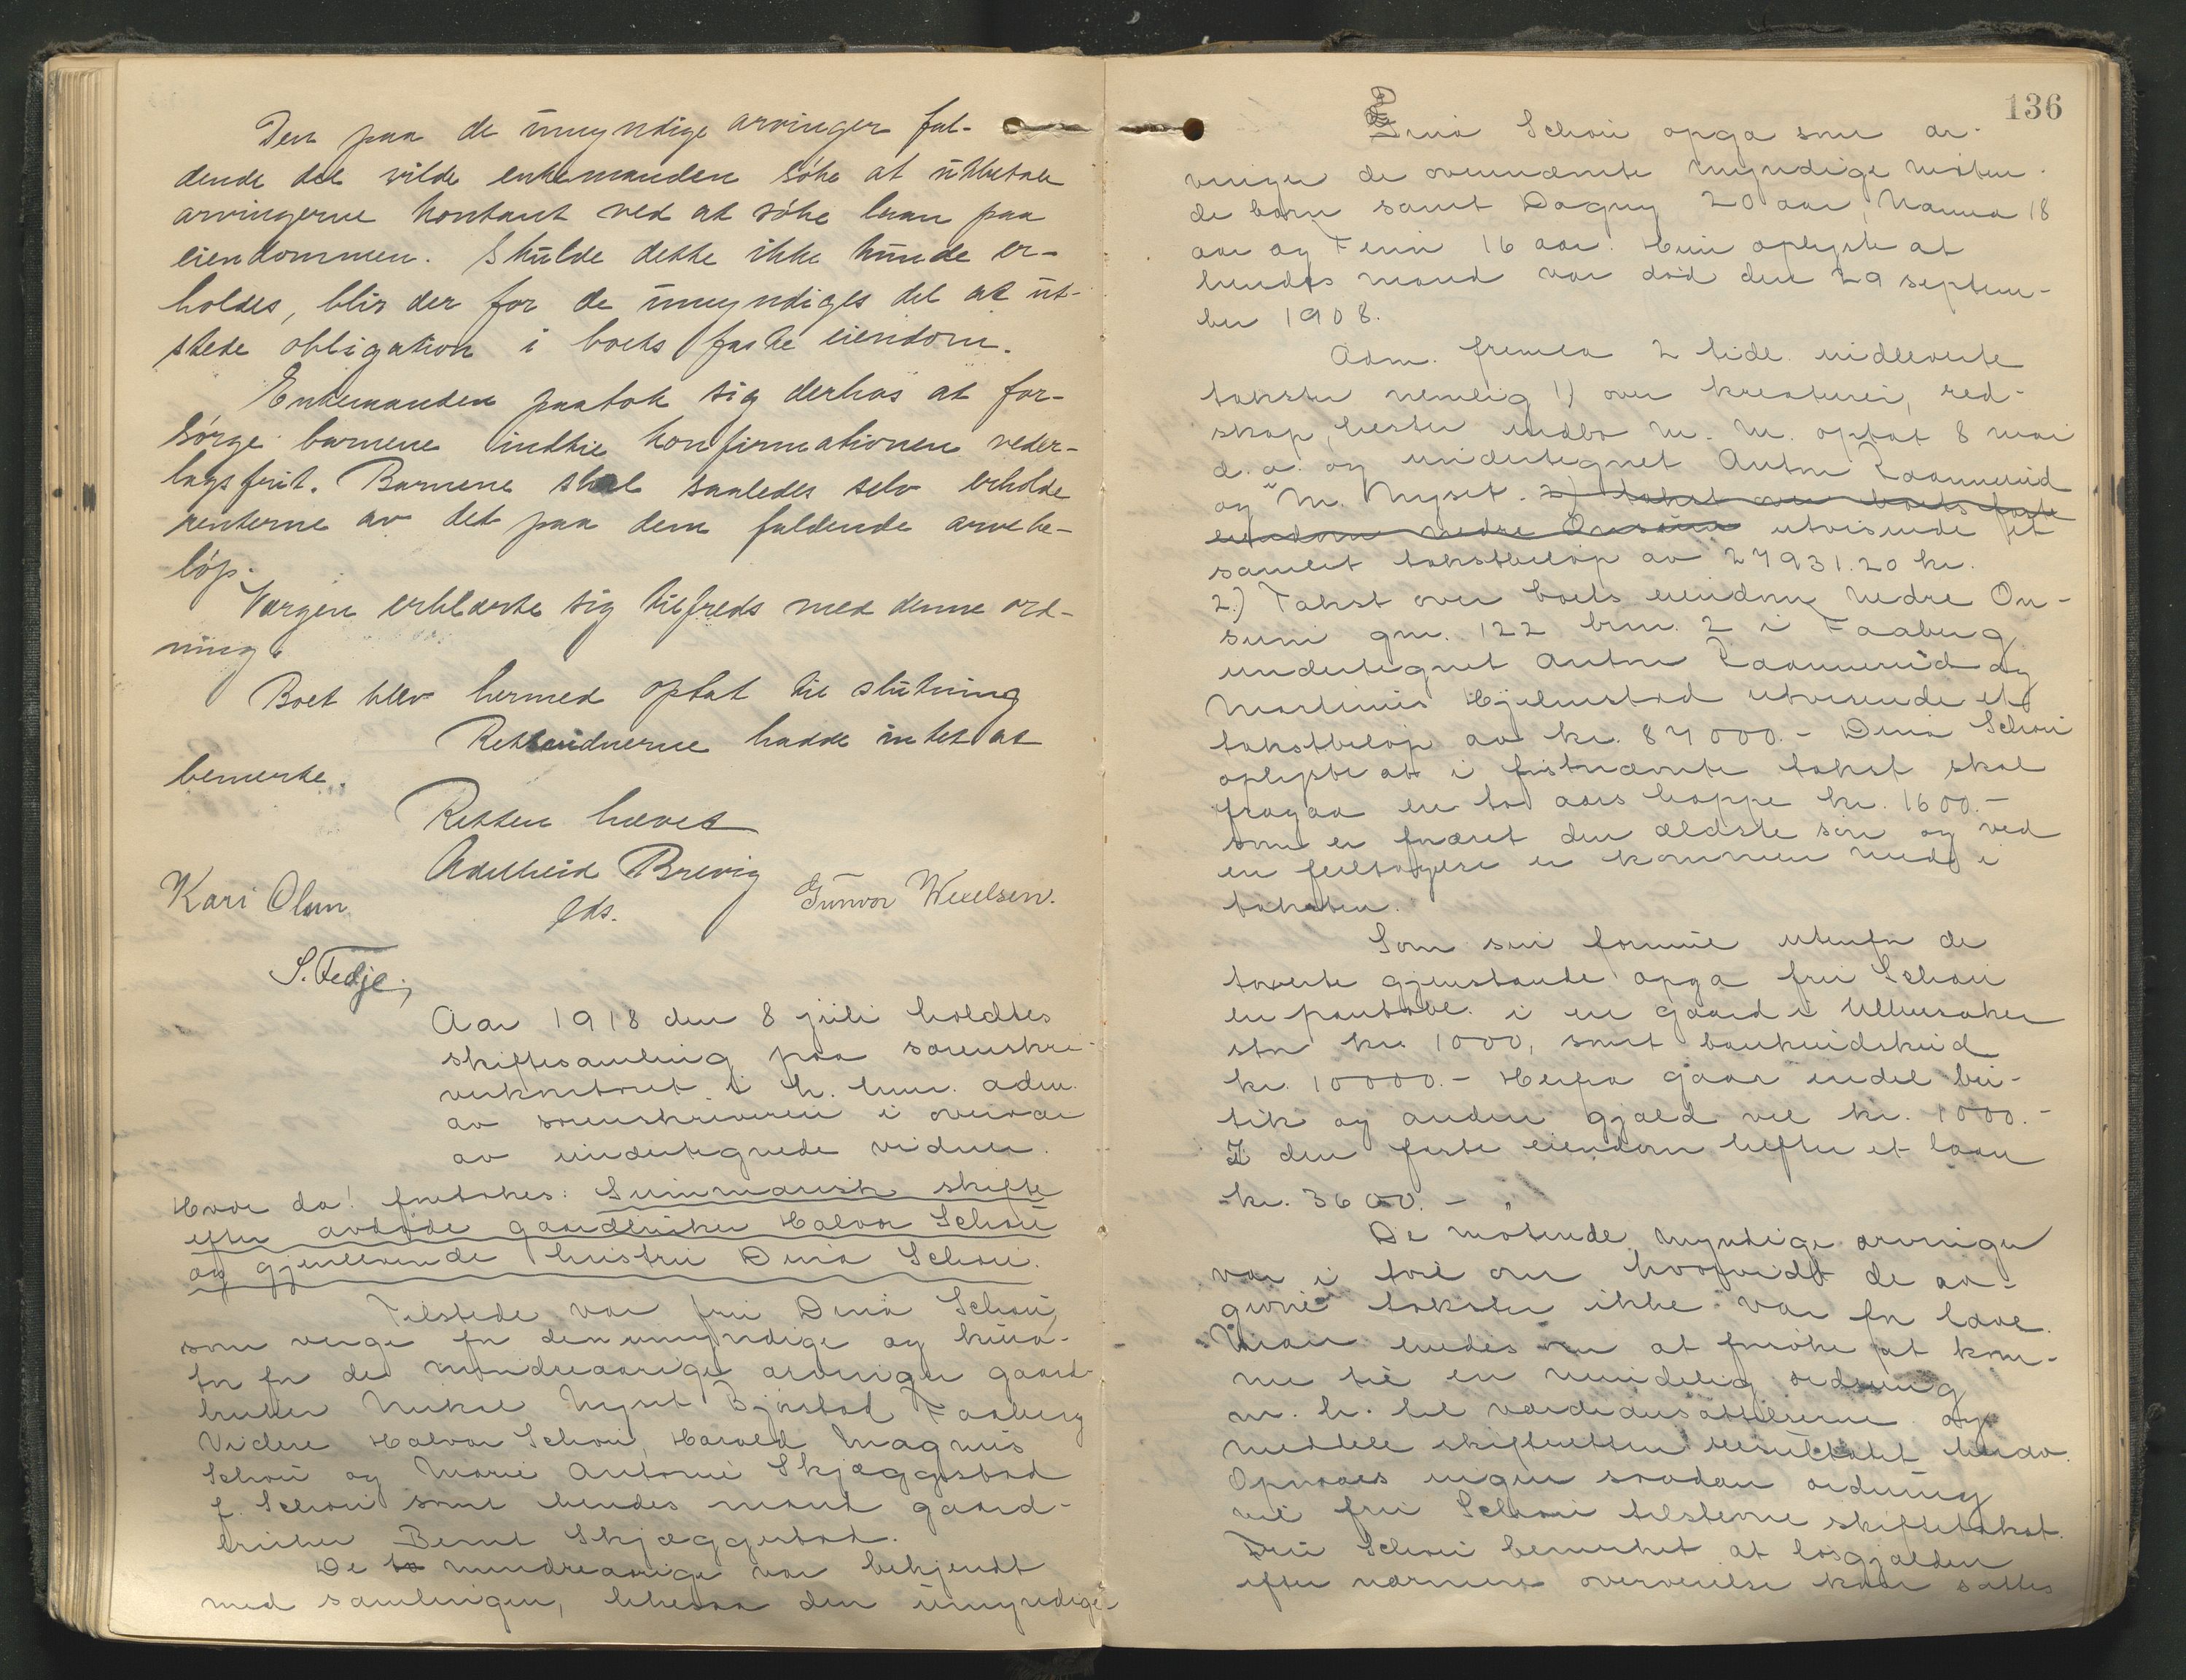 Den paa de umyndige arvinger fal-
dende del vilde enkemanden söke at utbetale
arvingerne kontant ved at söke laan paa
eiendommen. Skulde dette ikke kunde er-
holdes, blir der for de umyndiges del at ut-
stede obligation i boets faste eiendom.
Enkemanden paatok sig derhos at for-
sörge barnene indtil konfirmationen veder-
lagsfrit. Barnene skal saaledes selv erholde
renterne av det paa dem faldende arvebe-
löp.
Værgen erklærte sig tilfreds med denne ord-
ning.
Boet blev hermed optat til slutning
Retsvidnerne hadde intet at
bemerke.
Retten hævet
Adelheid Brevig
Kari Olsen
fds.
Gunvor Wexelsen.
S. Fedje.
Aar 1918 den 8 juli holdtes
skiftesamling paa sorenskri-
verkontoret i L.hmr. adm.
av sorenskriveren i overvær
av undertegnede vidner.
Hvor da! foretokes: Summarisk skifte
efter avdøde gaardbruker Halvor Schou
og gjenlevende hustru Dina Schou.
Tilstede var fru Dina Schou,
som verge for den umyndige og kura-
tor for de mindreaarige arvinger gaard-
bruker Mikal Nyset Bjørstad Faaberg
Videre Halvor Schou, Harald Magnus
Schou og Marie Antonie Skjæggestad
f. Schou samt hendes mand gaard-
bruker Bernt Skjæggestad.
De to mindreaarige var bekjendt
med samlingen, likesaa den umyndige
136
Dina Schou opga som ar-
vinger de ovennævnte myndige møten-
de barn samt Dagny 20 aar, Nanna 18
aar og Finn 16 aar. Hun oplyste at
hendes mand var død den 29 septem-
ber 1908.
Adm. fremla 2 tidl. indleverte
takster nemlig 1) over kreaturer, red-
skap, hester indbo m. m. optat 8 mai
d. a. og undertegnet Anton Raannerud
og M. Nyset. 2) takst over boets faste
eiendom nedre Onsum utvisende et
samlet takstbeløp av 27931.20 kr.
2.) Takst over boets eiendom nedre On-
sum gnr. 122 brn. 2 i Faaberg
undertegnet Anton Raannerud og
Martinus Hjelmstad utvisende et
takstbeløp av kr. 87000.- Dina Schou
oplyste at i førstnævnte takst skal
fragaa en to aars hoppe kr. 1600.-
som er foræret den ældste søn og ved
en feiltagelse er kommen med i
taksten.
Som sin formue utenfor de
takserte gjenstande opga fru Schou
en pantobl. i en gaard i Ullensaker
stor kr. 1000, samt bankindskud
kr. 10000.- Herfra gaar endel bu-
tik og anden gjæld vel kr. 1000.-
I den faste eiendom hefter et laan
kr. 3600.-
De møtende myndige arvinger
var i tvil om hvorvidt de av-
givne takster ikke var for lave.
Man enedes om at forsøke at kom-
me til en mindelig ordning
m. h. til værdiansættelserne og
meddele skifteretten resultatet herav.
Opnaaes ingen saadan ordning
vil fru Schou tilstevne skiftetakst.
Fru Schou bemerket at løsgjælden
efter nærmere overveielse kan sættes